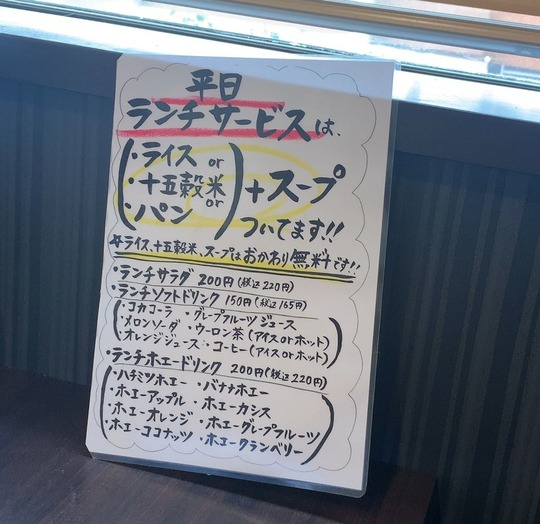 平日
ランチサービスは、
・ライス or
・十五穀米 or
・パン
+スープ
ついてます!!
☆ライス、十五穀米、スープはおかわり無料です!!
・ランチサラダ 200円(税込220円)
・ランチソフトドリンク 150円(税込165円)
・コカコーラ ・グレープフルーツジュース
・メロンソーダ ・ウーロン茶(アイスorホット)
・オレンジジュース ・コーヒー(アイスorホット)
・ランチホエードリンク 200円(税込220円)
・ハチミツホエー ・バナナホエー
・ホエーアップル ・ホエーカシス
・ホエーオレンジ ・ホエーグレープフルーツ
・ホエーココナッツ ・ホエークランベリー